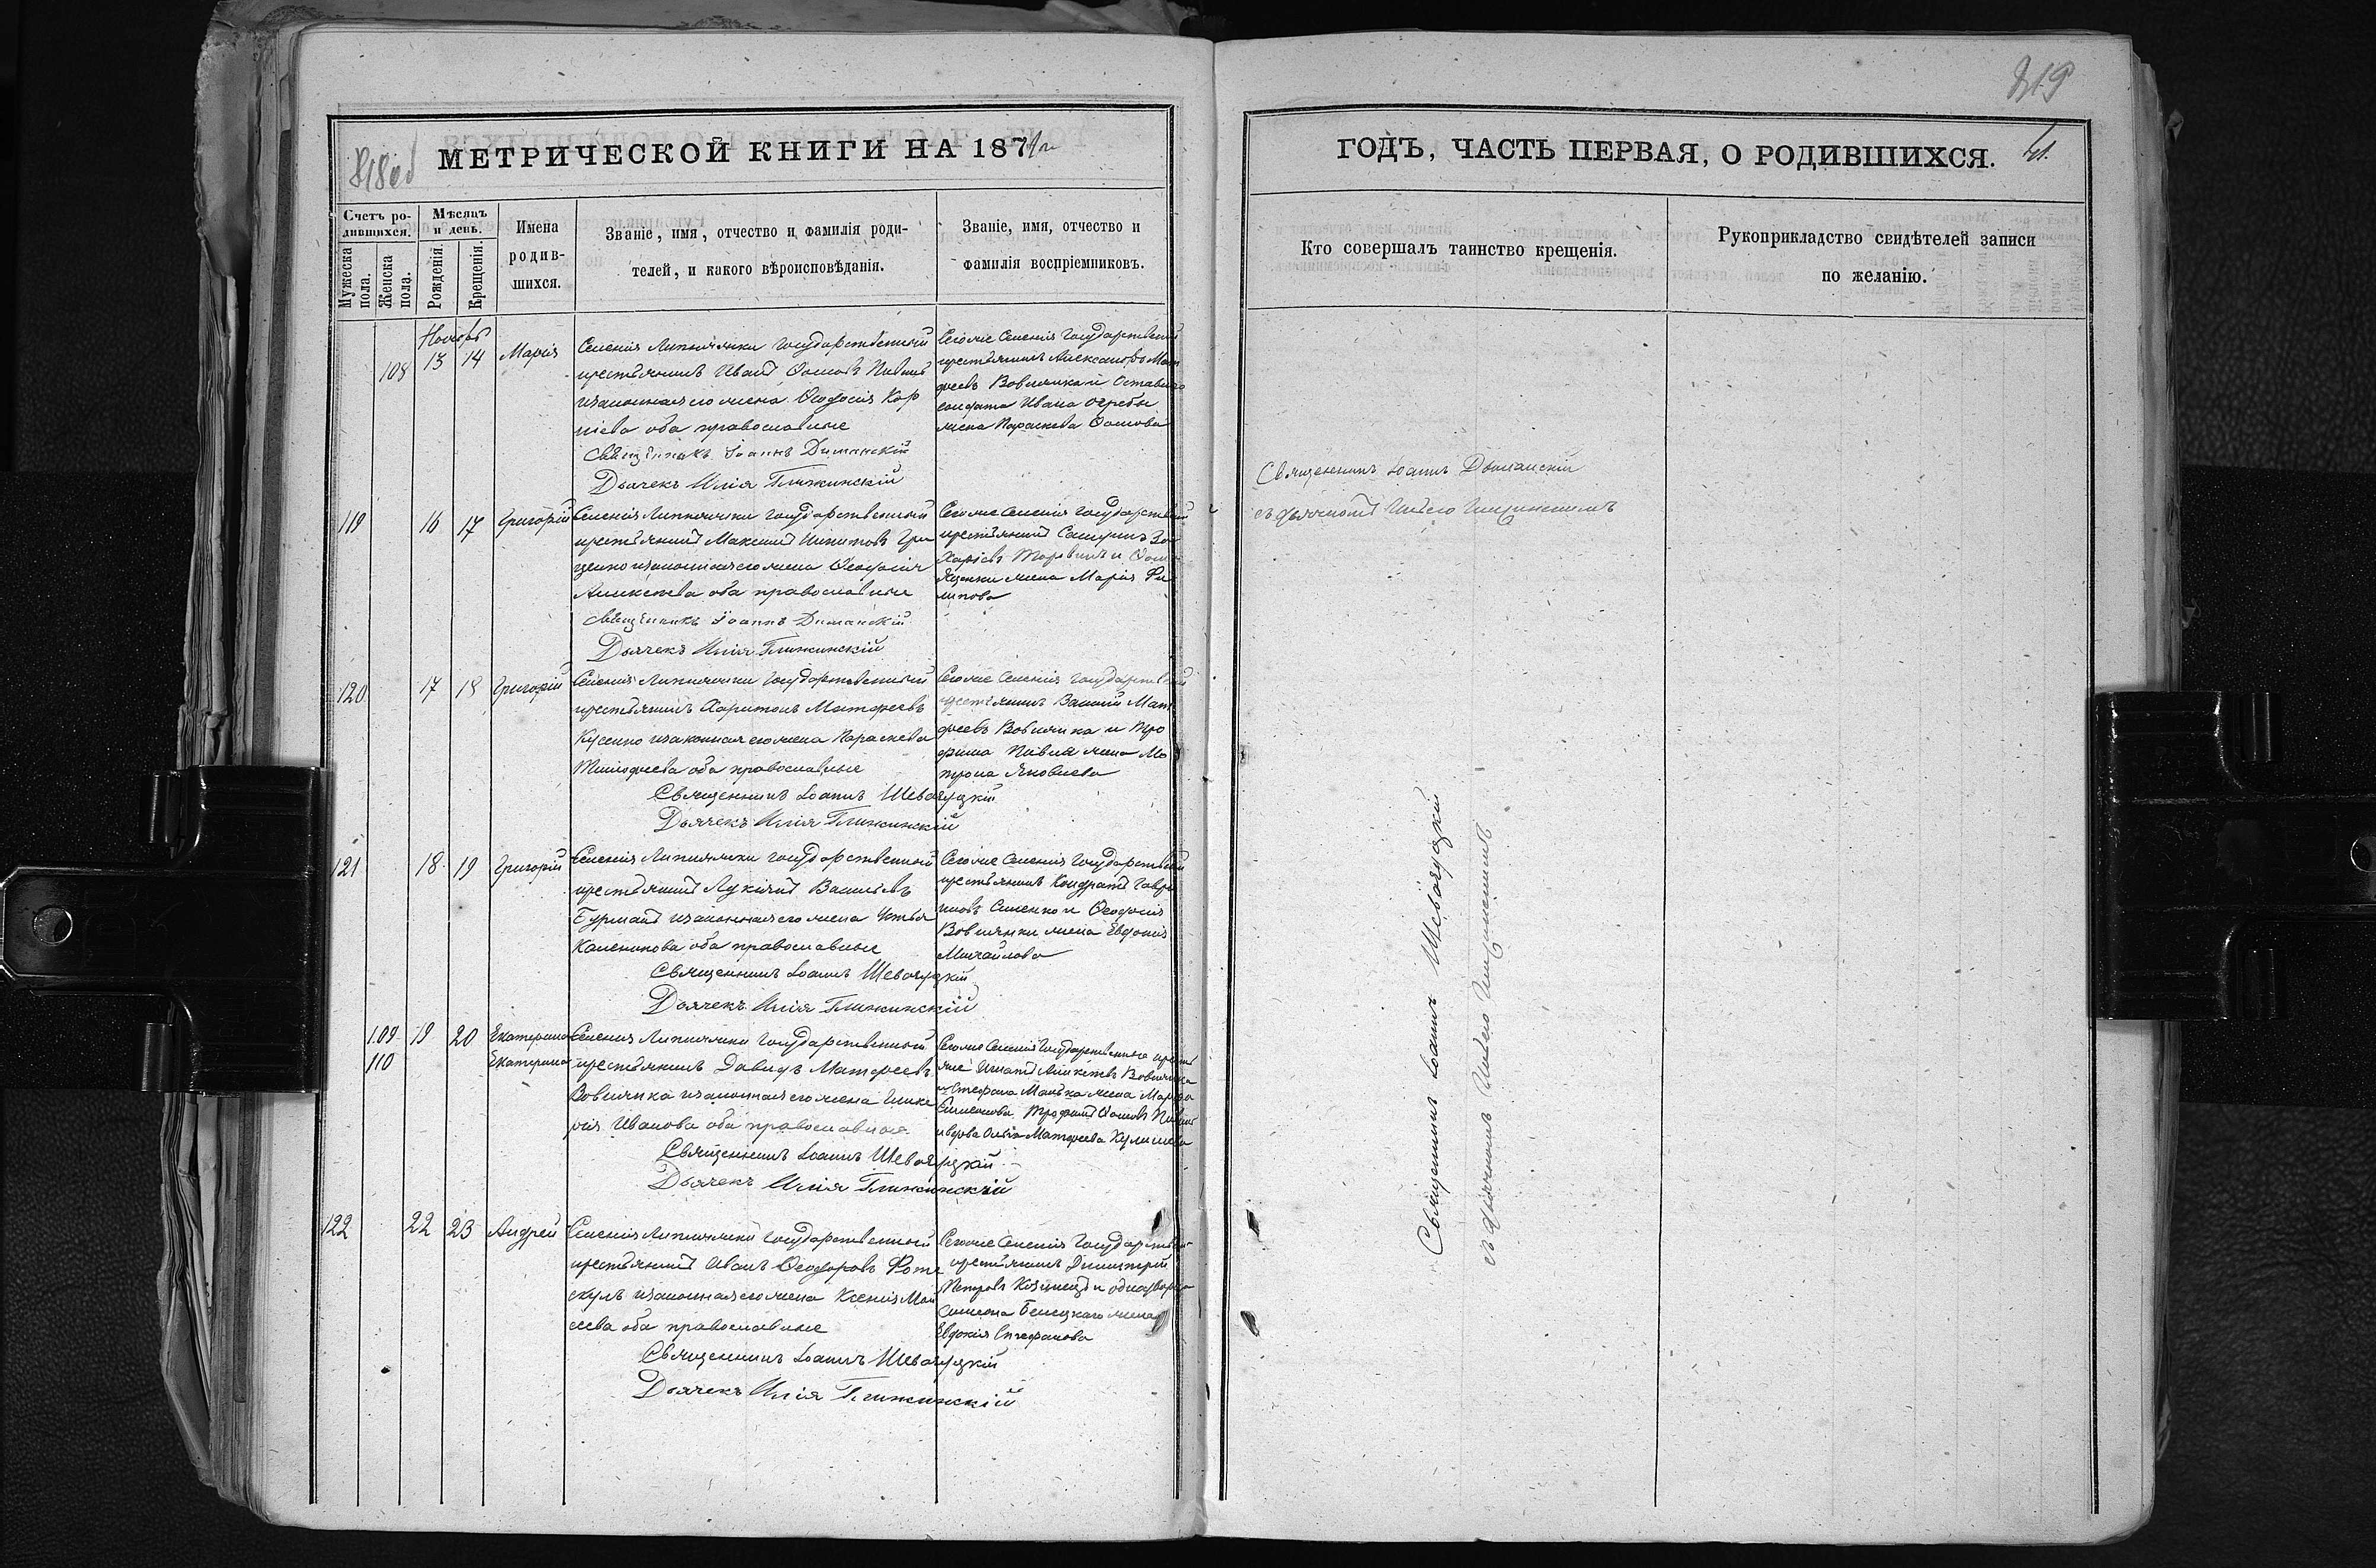 819
818об
МЕТРИЧЕСКОЙ КНИГИ НА 187
ГОДЪ, ЧАСТЬ ПЕРВАЯ, О РОДИВШИХСЯ.
Счетъ ро-
дившихся.
Мужеска
пола.
Женска
пола.
Мѣсяцъ
и день.
Рожденія.
Крещенія.
Имена
родив-
шихся.
Званіе, имя, отчество и фамилія роди-
телей, и какого вѣроисповѣданія.
Званіе, имя, отчество и
фамилія воспріемниковъ.
Кто совершалъ таинство крещенія.
Рукоприкладство свидѣтелей записи
по желанію.
Ноябрь
108 13 14 Марія
Селенія Липнячки государственный
крестьянинъ Иванъ Фоминъ
изаконная его жена Ѳеодосія Кор
нієва оба православные
Священникъ Іоаннъ Диманскій
Дьячекъ Илія Глижинскій
Тогоже Селенія государственный
крестьянинъ Александръ Мат
фѣевъ Вовнянка и
солдата Ивана
жена Параскева Фомова
119 16 17 Григорій
Селенія Липнячки государственный
крестьянинъ Максимъ Никитовъ Гри
ценко изаконная его жена Ѳеодосія
Алексѣева оба православные
Священникъ Іоаннъ Диманскій
Дьячекъ Илія Глижинскій
Тогоже Селенія государственный
крестьянинъ За
харіевъ и Фом
Яценки жена Марія Фи
липова
120 17 18 Григорій
Селенія Липнячки государственный
крестьянинъ Харитонъ Матфеевъ
Кусенко изаконная его жена Параскева
Тимофеева оба православные
Священникъ Іоаннъ Шевагуцкій
Дьячекъ Илія Глижинскій
Тогоже Селенія государственный
крестьянинъ Василій Мат
фѣевъ Вовнянка и Тро
фима жена Ма
трона Яковлева
121 18 19 Григорій
Селенія Липнячки государственный
крестьянинъ Лукіянъ Васильевъ
Бурманъ изаконная его жена
Каленикова оба православные
Священникъ Іоаннъ Шевагуцкій
Дьячекъ Илія Глижинскій
Тогоже Селенія государственный
крестьянинъ Кондратъ Гаври
ловъ Синенко и Ѳеодосія
Вовнянки жена Евдокія
Михайлова
109 19 20 Екатерина
110 Екатерина
Селенія Липнячки государственный
крестьянинъ Давидъ Матфеевъ
Вовнянка изаконная его жена Глике
рія Иванова оба православные
Священникъ Іоаннъ Шевагуцкій
Дьячекъ Илія Глижинскій
Тогоже Селенія государственные
Игнатъ Алексѣевъ Вовнянка
и Стефана жена
Трофимъ Фоминъ
и вдова Матфеева
122 22 23 Андрей
Селенія Липнячки государственный
крестьянинъ Иванъ Ѳеодоровъ
изаконная его жена Ксенія Мои
сеева оба православные
Священникъ Іоаннъ Шевагуцкій
Дьячекъ Илія Глижинскій
Тогоже Селенія государственный
крестьянинъ Димитрій
Петровъ и однодворца
Симеона Белецкаго жена
Евдокія Стефанова
Священникъ Іоаннъ Диманскій
съ дьячкомъ Иліею Глижинскимъ
Священникъ Іоаннъ Шевагуцкій
съ дьячкомъ Иліею Глижинскимъ